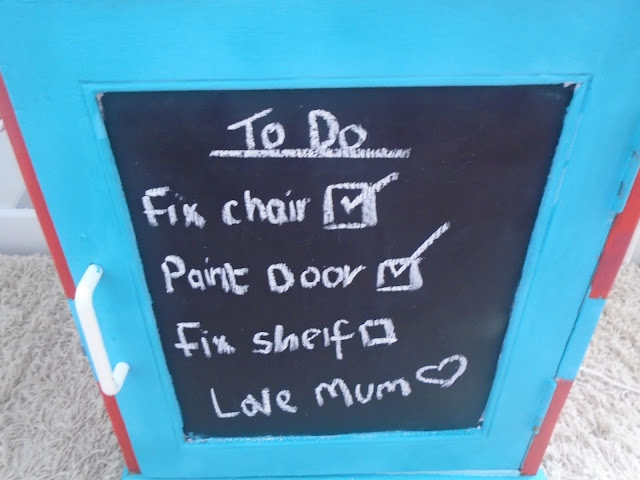 To Do
Fix chair
Paint Door
Fix shelf
Love Mum